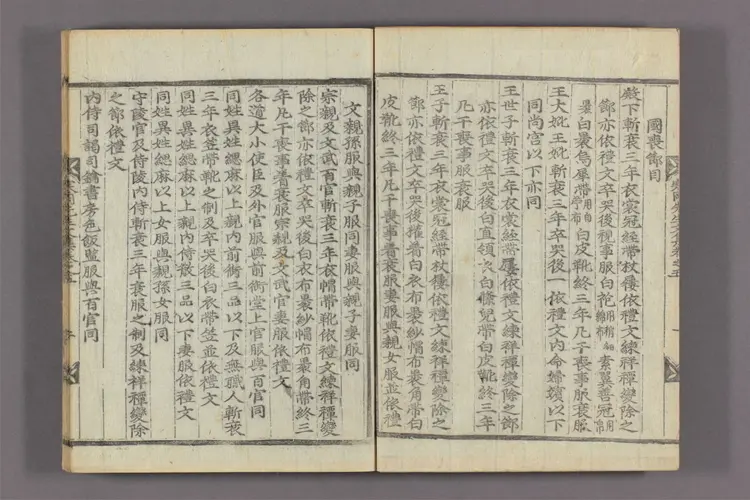 國喪節目
殿下斬衰三年衣裳冠絰帶杖依禮文練祥禫變除之
節亦依禮文卒哭後視事服白袍素翼善冠
白皮靴終三年凡干喪事服衰服
王大妃王妃斬衰三年卒哭後一依禮文內命婦嬪以下
同尚宮以下亦同
王世子斬衰三年衣裳絰帶屨依禮文練祥禫變除之節
亦依禮文卒哭後白直領衣白絛兒帶白皮靴終三年
凡干喪事服衰服
王子斬衰三年衣裳冠絰帶杖依禮文練祥禫變除之
節亦依禮文卒哭後白衣布裹紗帽布裹角帶白
皮靴終三年凡干喪事着衰服妻服與親女服並依禮
文親孫服與親子服同妻服與親子妻服同
宗親及文武百官斬衰三年衣帽帶靴依禮文練祥禫變
除之節亦依禮文卒哭後白衣布裹紗帽布裹角帶終三
年凡干喪事着衰服宗親及文武官妻服依禮文
各道大小使臣及外官服與前銜堂上官服與百官同
同姓異姓緦麻以上親內前銜三品以下及無職人斬衰
三年衣笠帶靴之制及卒哭後白衣帶笠並依禮文
同姓異姓緦麻以上親內侍三品以下妻服依禮文
同姓異姓緦麻以上女服與親孫女服同
守陵官及侍陵內侍斬衰三年衰服之制及練祥禫變除
之節依禮文
內侍司謁司鑰書房色飯監服與百官同